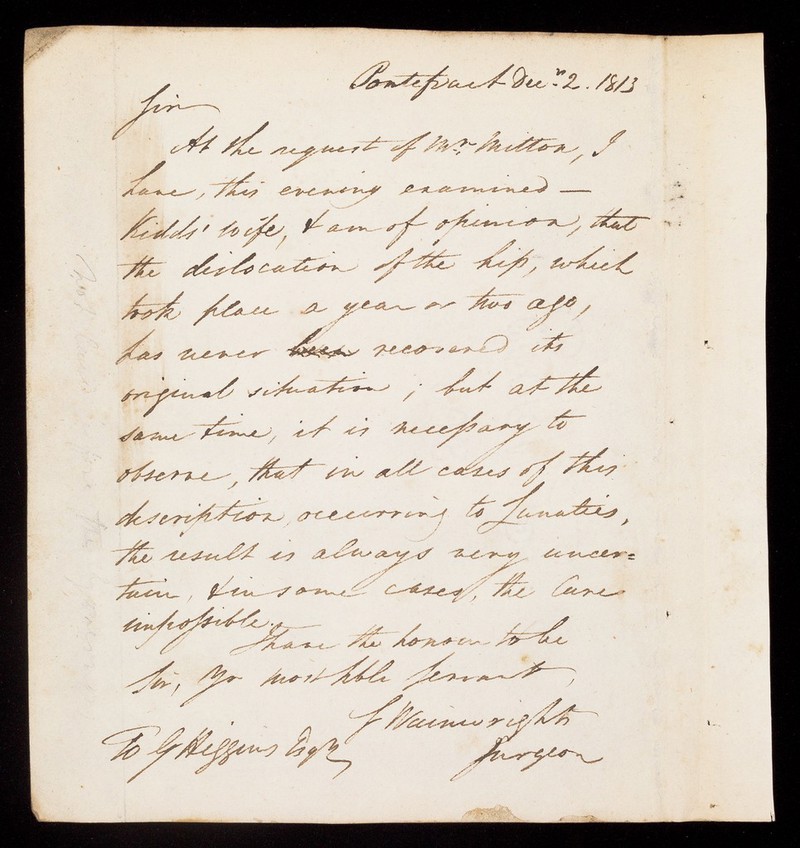 Pontefract Decr. 2. 1813
Sir
At the request of Mr. Mitton, I
have, this evening examined —
Kidds' wife, & am of opinion, that
the dislocation of the hip, which
took place a year or two ago,
has never been recovered its
original situation ; but at the
same time, it is necessary to
observe, that in all cases of this
description, occurring to Lunatics,
the result is always very uncer=
tain, & in some cases, the Cure
impossible.
I have the honour to be
Sir, Yr most hble servant,
S Wainwright
Surgeon
To G Higgins Esqr